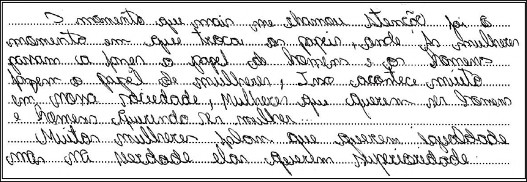 O momento que mais me chamou Atenção foi o
momento em que troca os papeis, onde As mulheres
param a fazer o papel do homens e os homens
fazem o papel de mulheres, Isso acontece muito
em nossa sociedade, Mulheres que querem ser homens
e homens querendo ser mulher.
Muitas mulheres falam que querem igualdade
mas na verdade elas querem superioridade.